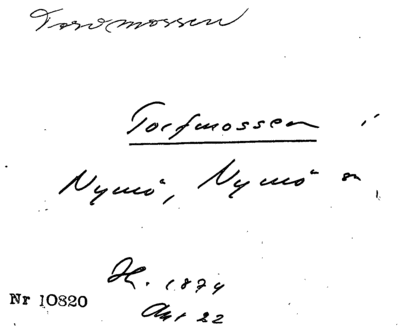 Torvmossen
Torfmossen i
Nymö, Nymö sn,
H. 1874
Akt 22
Nr 10820